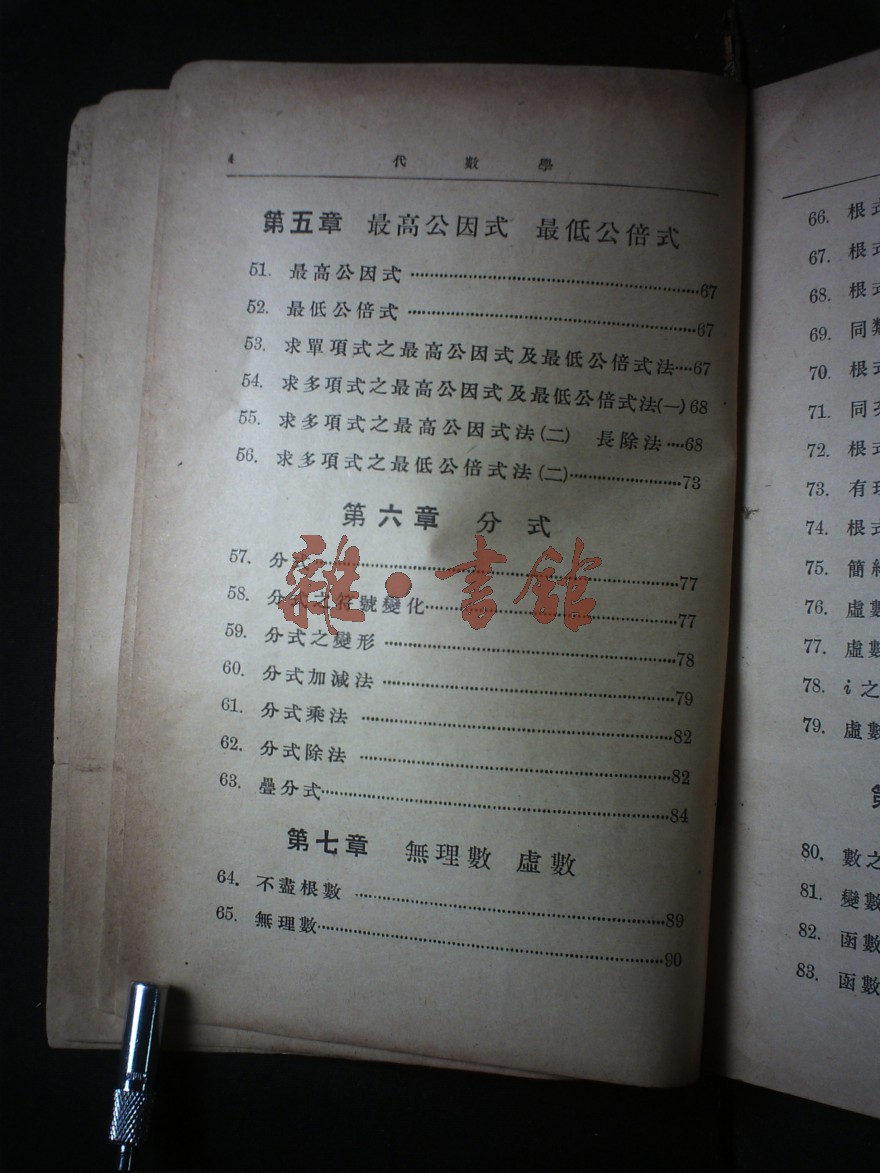 4 代數學
第五章 最高公因式 最低公倍式
51. 最高公因式 ……67
52. 最低公倍式 ……67
53. 求單項式之最高公因式及最低公倍式法…67
54. 求多項式之最高公因式及最低公倍式法(一) 68
55. 求多項式之最高公因式法(二) 長除法…68
56. 求多項式之最低公倍式法(二)……73
第六章 分式
57. 分式……77
58. 分式之符號變化……77
59. 分式之變形……78
60. 分式加減法……79
61. 分式乘法……82
62. 分式除法……82
63. 疊分式……84
第七章 無理數 虛數
64. 不盡根數……89
65. 無理數……90
雜·書館
66. 根式
67. 根式
68. 根式
69. 同類
70. 根式
71. 同
72. 根式
73. 有理
74. 根式
75. 簡
76. 虛數
77. 虛數
78. i 之
79. 虛數
第
80. 數之
81. 變數
82. 函數
83. 函數